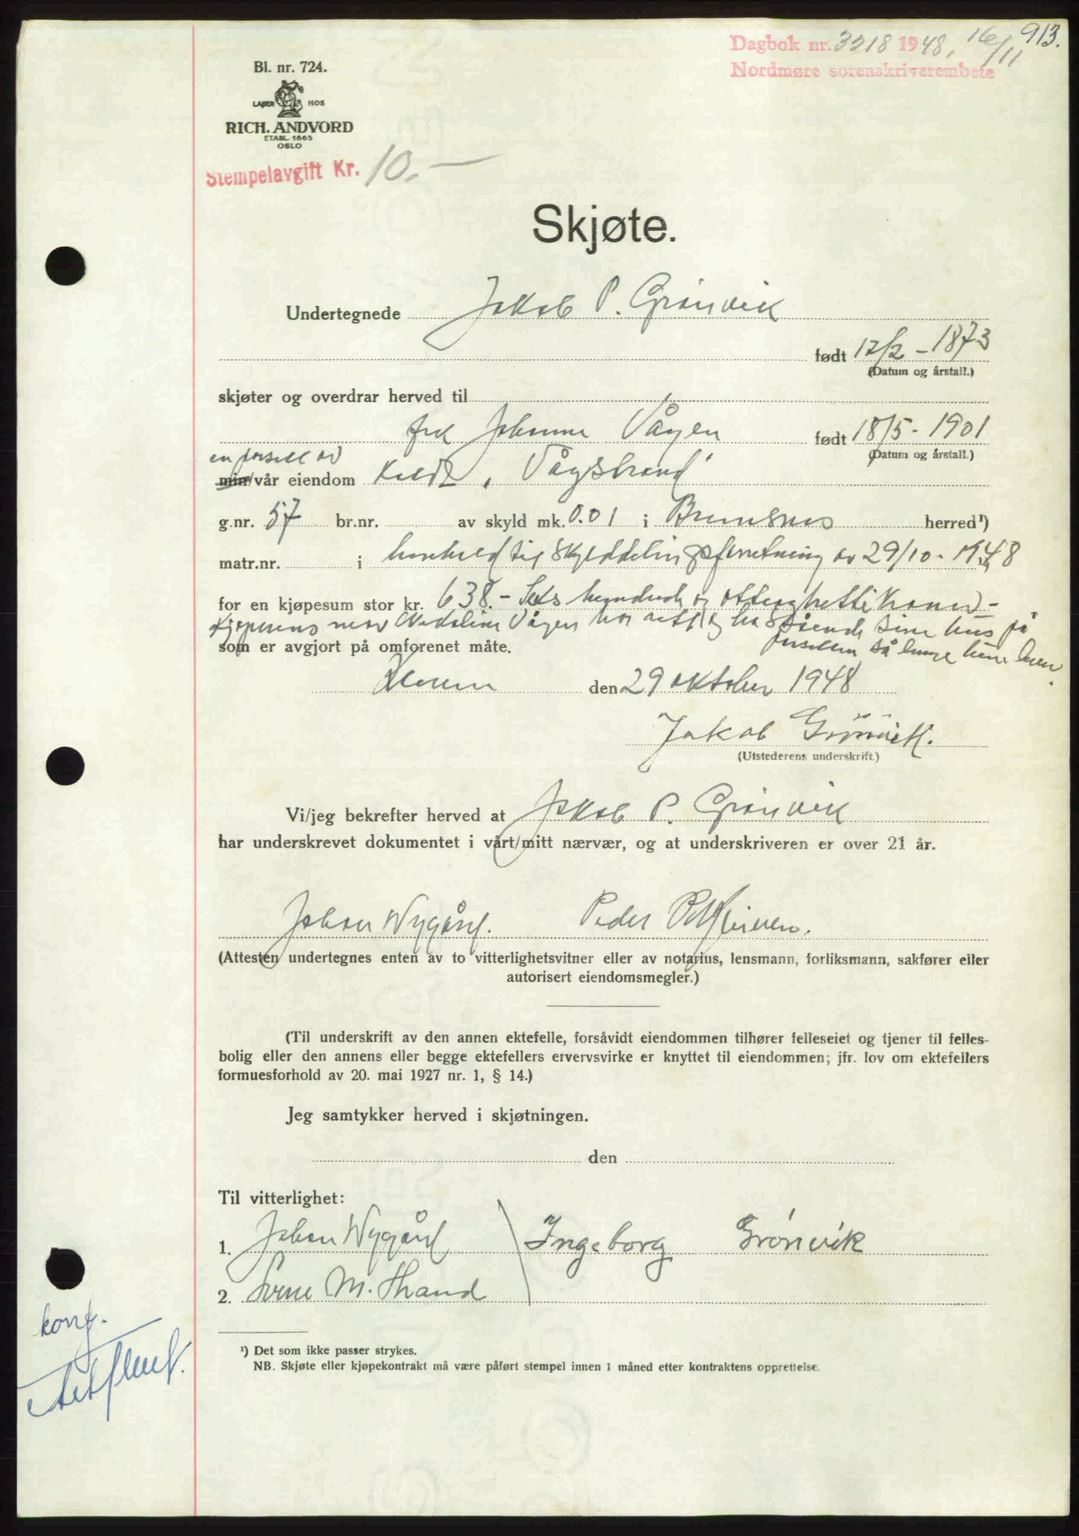 913.
Dagbok nr. 3218 1948, 16/11
Nordmøre sorenskriverembete
Bl. nr. 724.
LAGER HOS
RICH. ANDVORD
ETABL. 1865
OSLO
Stempelavgift Kr. 10.-
Skjøte.
Undertegnede Jakob P. Grønvik
født 12/2 - 1873
(Datum og årstall.)
skjøter og overdrar herved til
frk Johanne Vågen født 18/5 - 1901
(Datum og årstall.)
en parsell av
min/vår eiendom kaldt „Vågstrand"
g.nr. 57 br.nr. av skyld mk. 0.01 i Bremsnes herred¹)
matr.nr. i henhold til skylddelingsforretning av 29/10 - 1948
for en kjøpesum stor kr. 638.- Seks hundrede og otteogtretti kroner -
Kjøperens mor Nedoline Vågen har rett til å ha stående sine hus på
parsellen så lenge hun lever.
som er avgjort på omforenet måte.
den 29 oktober 1948
Jakob Grønvik.
(Utstederens underskrift.)
Vi/jeg bekrefter herved at Jakob P. Grønvik
har underskrevet dokumentet i vårt/mitt nærvær, og at underskriveren er over 21 år.
Johan Nygård. Peder
(Attesten undertegnes enten av to vitterlighetsvitner eller av notarius, lensmann, forliksmann, sakfører eller
autorisert eiendomsmegler.)
(Til underskrift av den annen ektefelle, forsåvidt eiendommen tilhører felleseiet og tjener til felles-
bolig eller den annens eller begge ektefellers ervervsvirke er knyttet til eiendommen; jfr. lov om ektefellers
formuesforhold av 20. mai 1927 nr. 1, § 14.)
Jeg samtykker herved i skjøtningen.
den
Til vitterlighet:
1. Johan Nygård Ingeborg Grønvik
2. M. Strand
konf.
¹) Det som ikke passer strykes.
NB. Skjøte eller kjøpekontrakt må være påført stempel innen 1 måned etter kontraktens opprettelse.